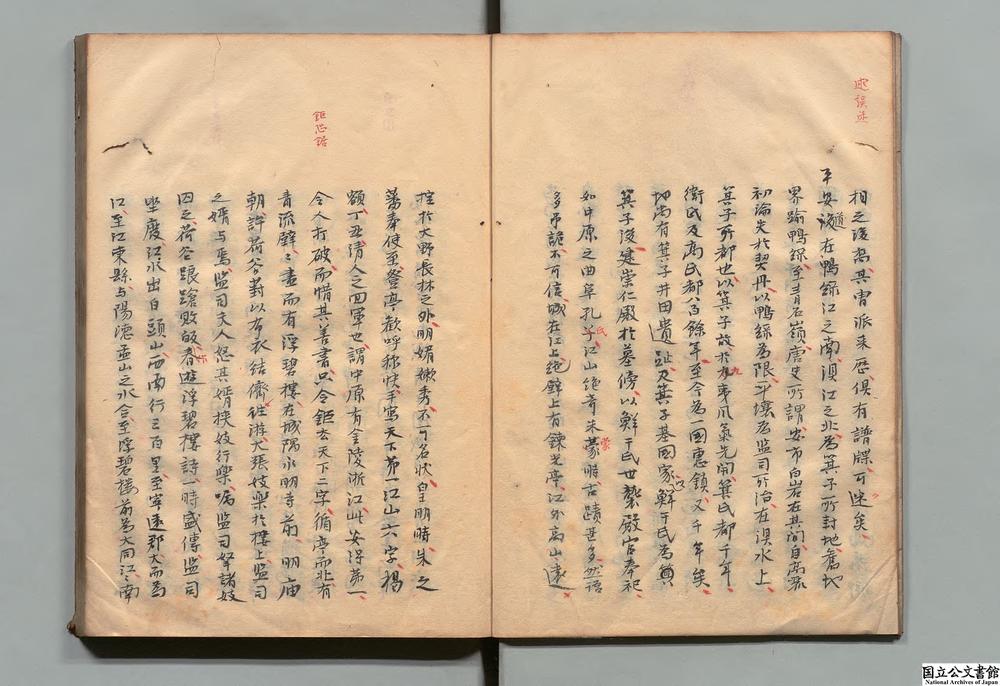 迷誤述
相之後裔其冑派来歷俱有譜牒可迷矣
平安道在鴨綠江之南浿江之北為箕子所封地舊地
界踰鴨綠至青石嶺唐史所謂安市白岩在其間自高麗
初論失於契丹以鴨綠為限平壤為監司所治在浿水上
箕子所都也以箕子故於九夷風氣先開箕氏都千年
衛氏及高氏都八百餘年至今為一國惠鎮又千年矣
地尚有箕子井田遺趾及箕子墓國家以鮮于氏為箕
箕子後建崇仁殿於墓傍以鮮于氏世襲殿官奉祀
如中原之曲阜孔氏江山絶竒朱蒙時古蹟甚多然語
多吊詭不可信城在江上絶壁上有錬光亭江外高山遠
控於大野長林之外明媚嫩秀不可名状皇明時朱之
蕃奉使至登亭歡呼称快手寫天下第一江山六字揭
鉅恐鋸
額丁丑清人之回軍也謂中原有金陵浙江此安得第一
令人打破而惜其善書只令鉅去天下二字循亭而北有
青流壁々盡而有浮碧樓在城隅永明寺前 明庙
朝許荷谷篈以布衣結儕往游大張妓樂於樓上監司
之婿与焉監司夫人怒其婿挟妓行樂嘱監司拏諸妓
囚之荷谷踉蹌敗皈春遊浮碧樓詩一時盛傳監司
坐廢江水出白頭山西南行三百里至寧遠郡大而為
江至江東縣与陽德孟山之水合至浮碧樓前為大同江々南
国立公文書館
National Archives of Japan